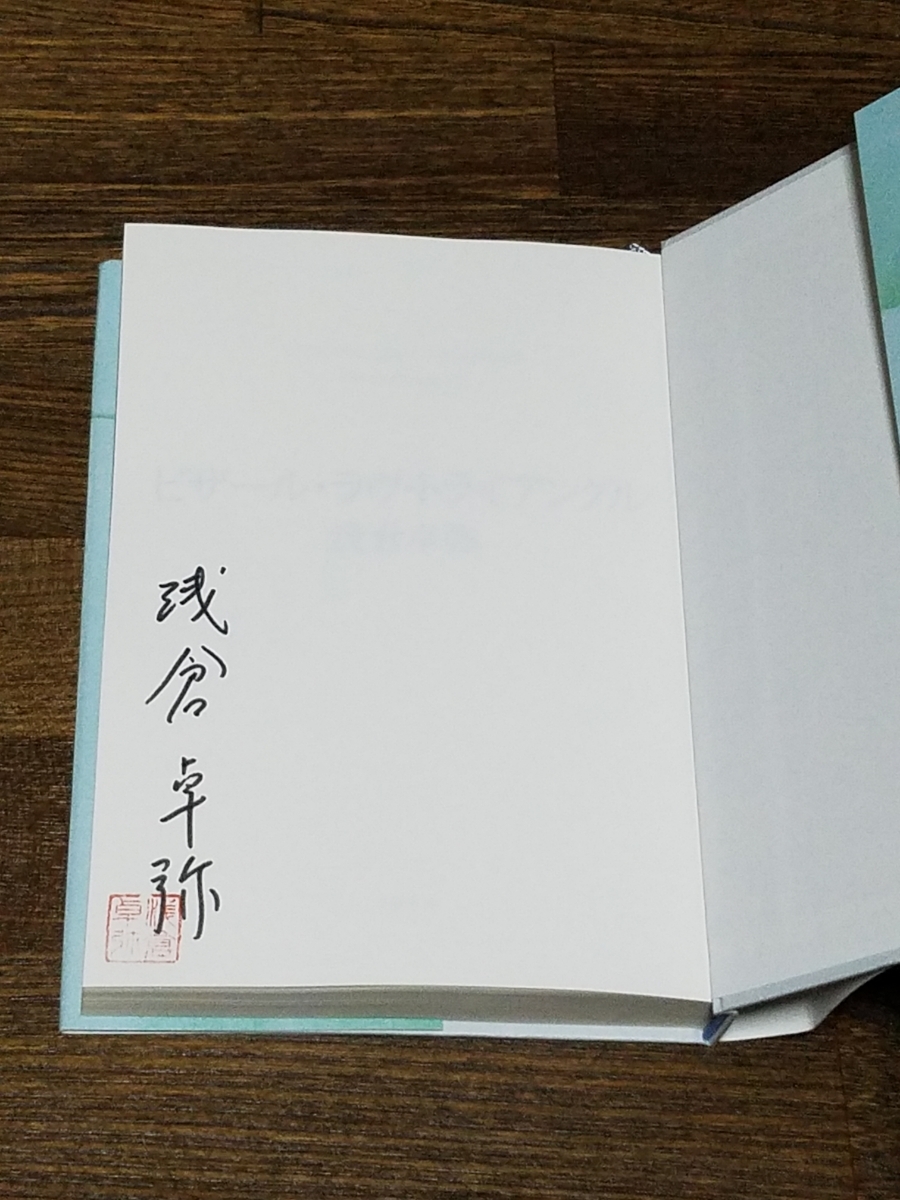 ビザール・ラヴ・トライアングル
浅倉卓弥
浅倉卓弥
浅倉
卓弥